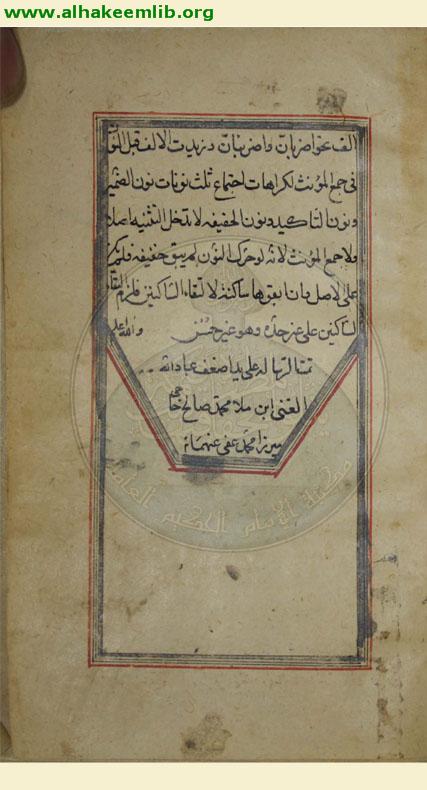 www.alhakeemlib.org
الف نحو اضربان واضربنان وزيدت الالف قبل النون
فى جمع المؤنث لكراهات اجتماع ثلث نونات نون الضمير
ونون التاكيد ونون الخفيفه لا تدخل التثنيه اصلا
ولا جمع المؤنث لانه لو حرك النون لم يبق خفيفه فلم يكن
على الاصل وان ابقوها ساكنة لا لتقاء الساكنين فلزم التقاء
الساكنين على غير حده وهو غير حسن والله اعلم
تمت الرساله على يد اضعف عباد الله
الغنى ابن ملا محمد صالح حاجى
ميرزا محمد عفى عنهما
مكتبة الإمام الحكيم العامة